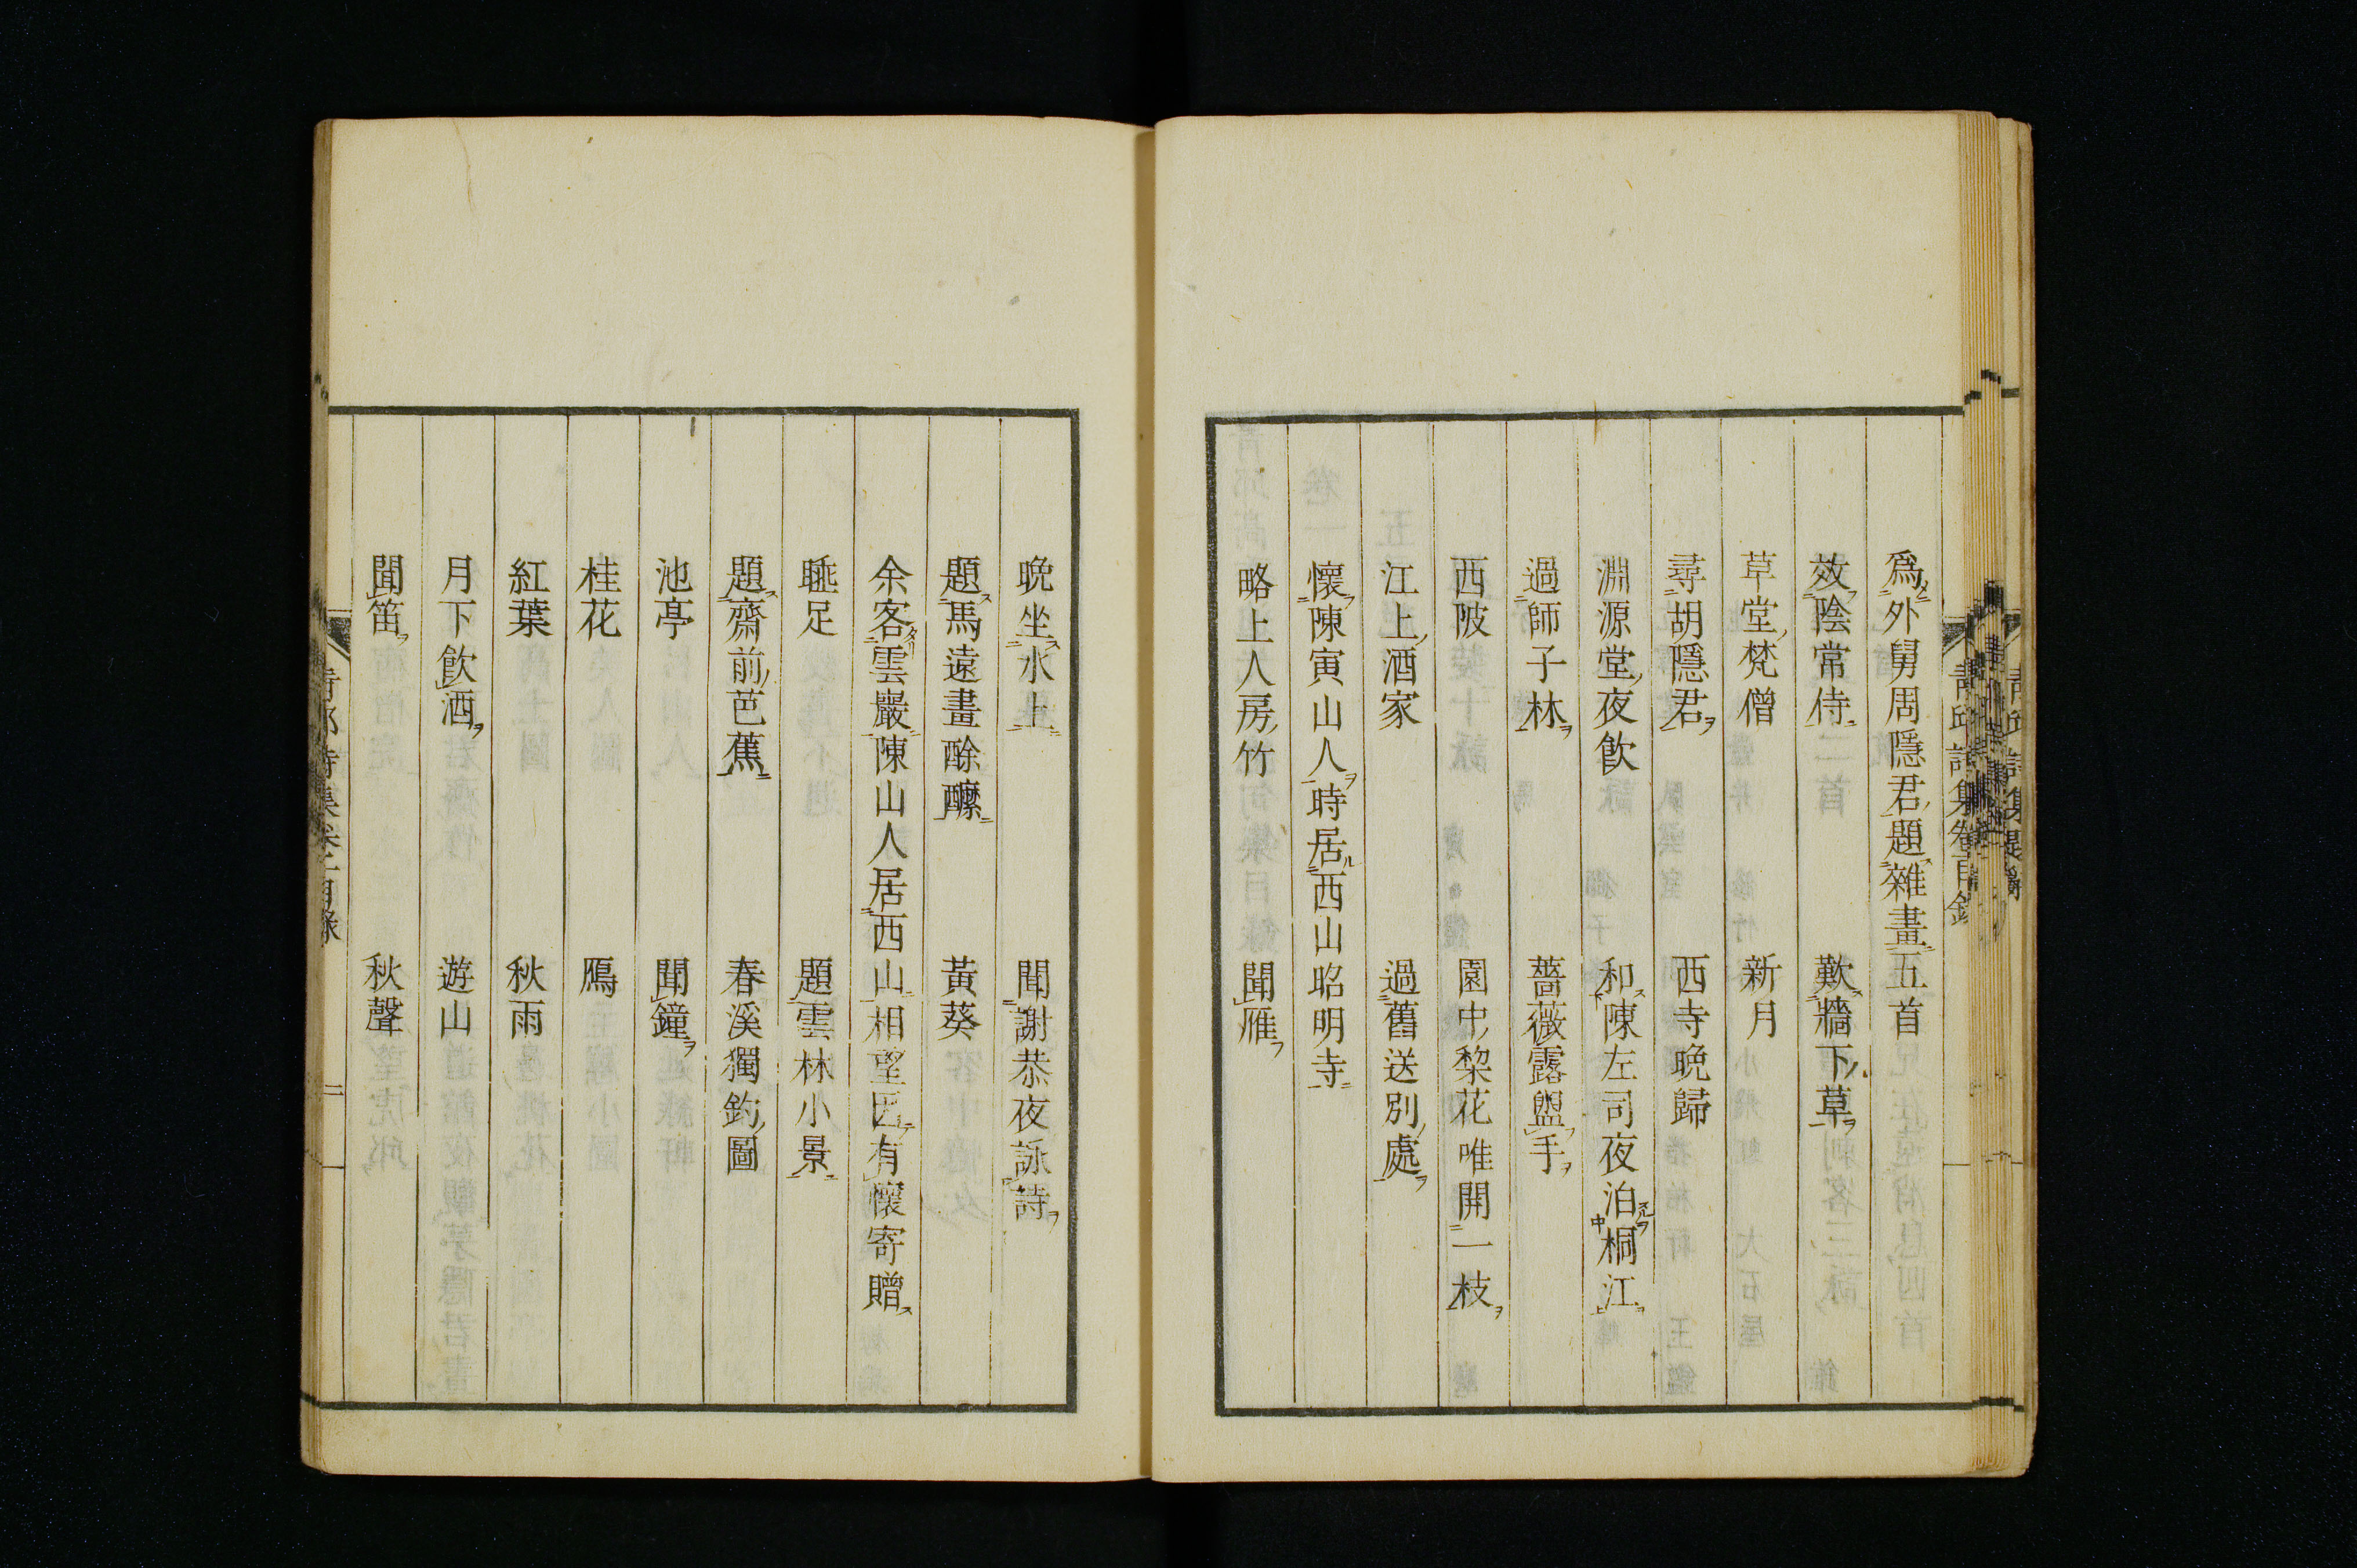 爲外舅周隱君題雜畫五首
效陰常侍 歎牆下草
草堂梵僧 新月
尋胡隱君 西寺晚歸
淵源堂夜飮 和陳左司夜泊桐江
過師子林 薔薇露盥手
西陂 園中棃花唯開一枝
江上酒家 過舊送別處
懷陳寅山人時居西山昭明寺
略上人房竹 聞雁
晚坐水上 聞謝恭夜詠詩
題馬遠畫酴醿 黃葵
余客雲巖陳山人居西山相望因有懷寄贈
睡足 題雲林小景
題齋前芭蕉 春溪獨釣圖
池亭 聞鐘
桂花 鴈
紅葉 秋雨
月下飮酒 遊山
聞笛 秋聲
青邱詩集卷一目錄 二